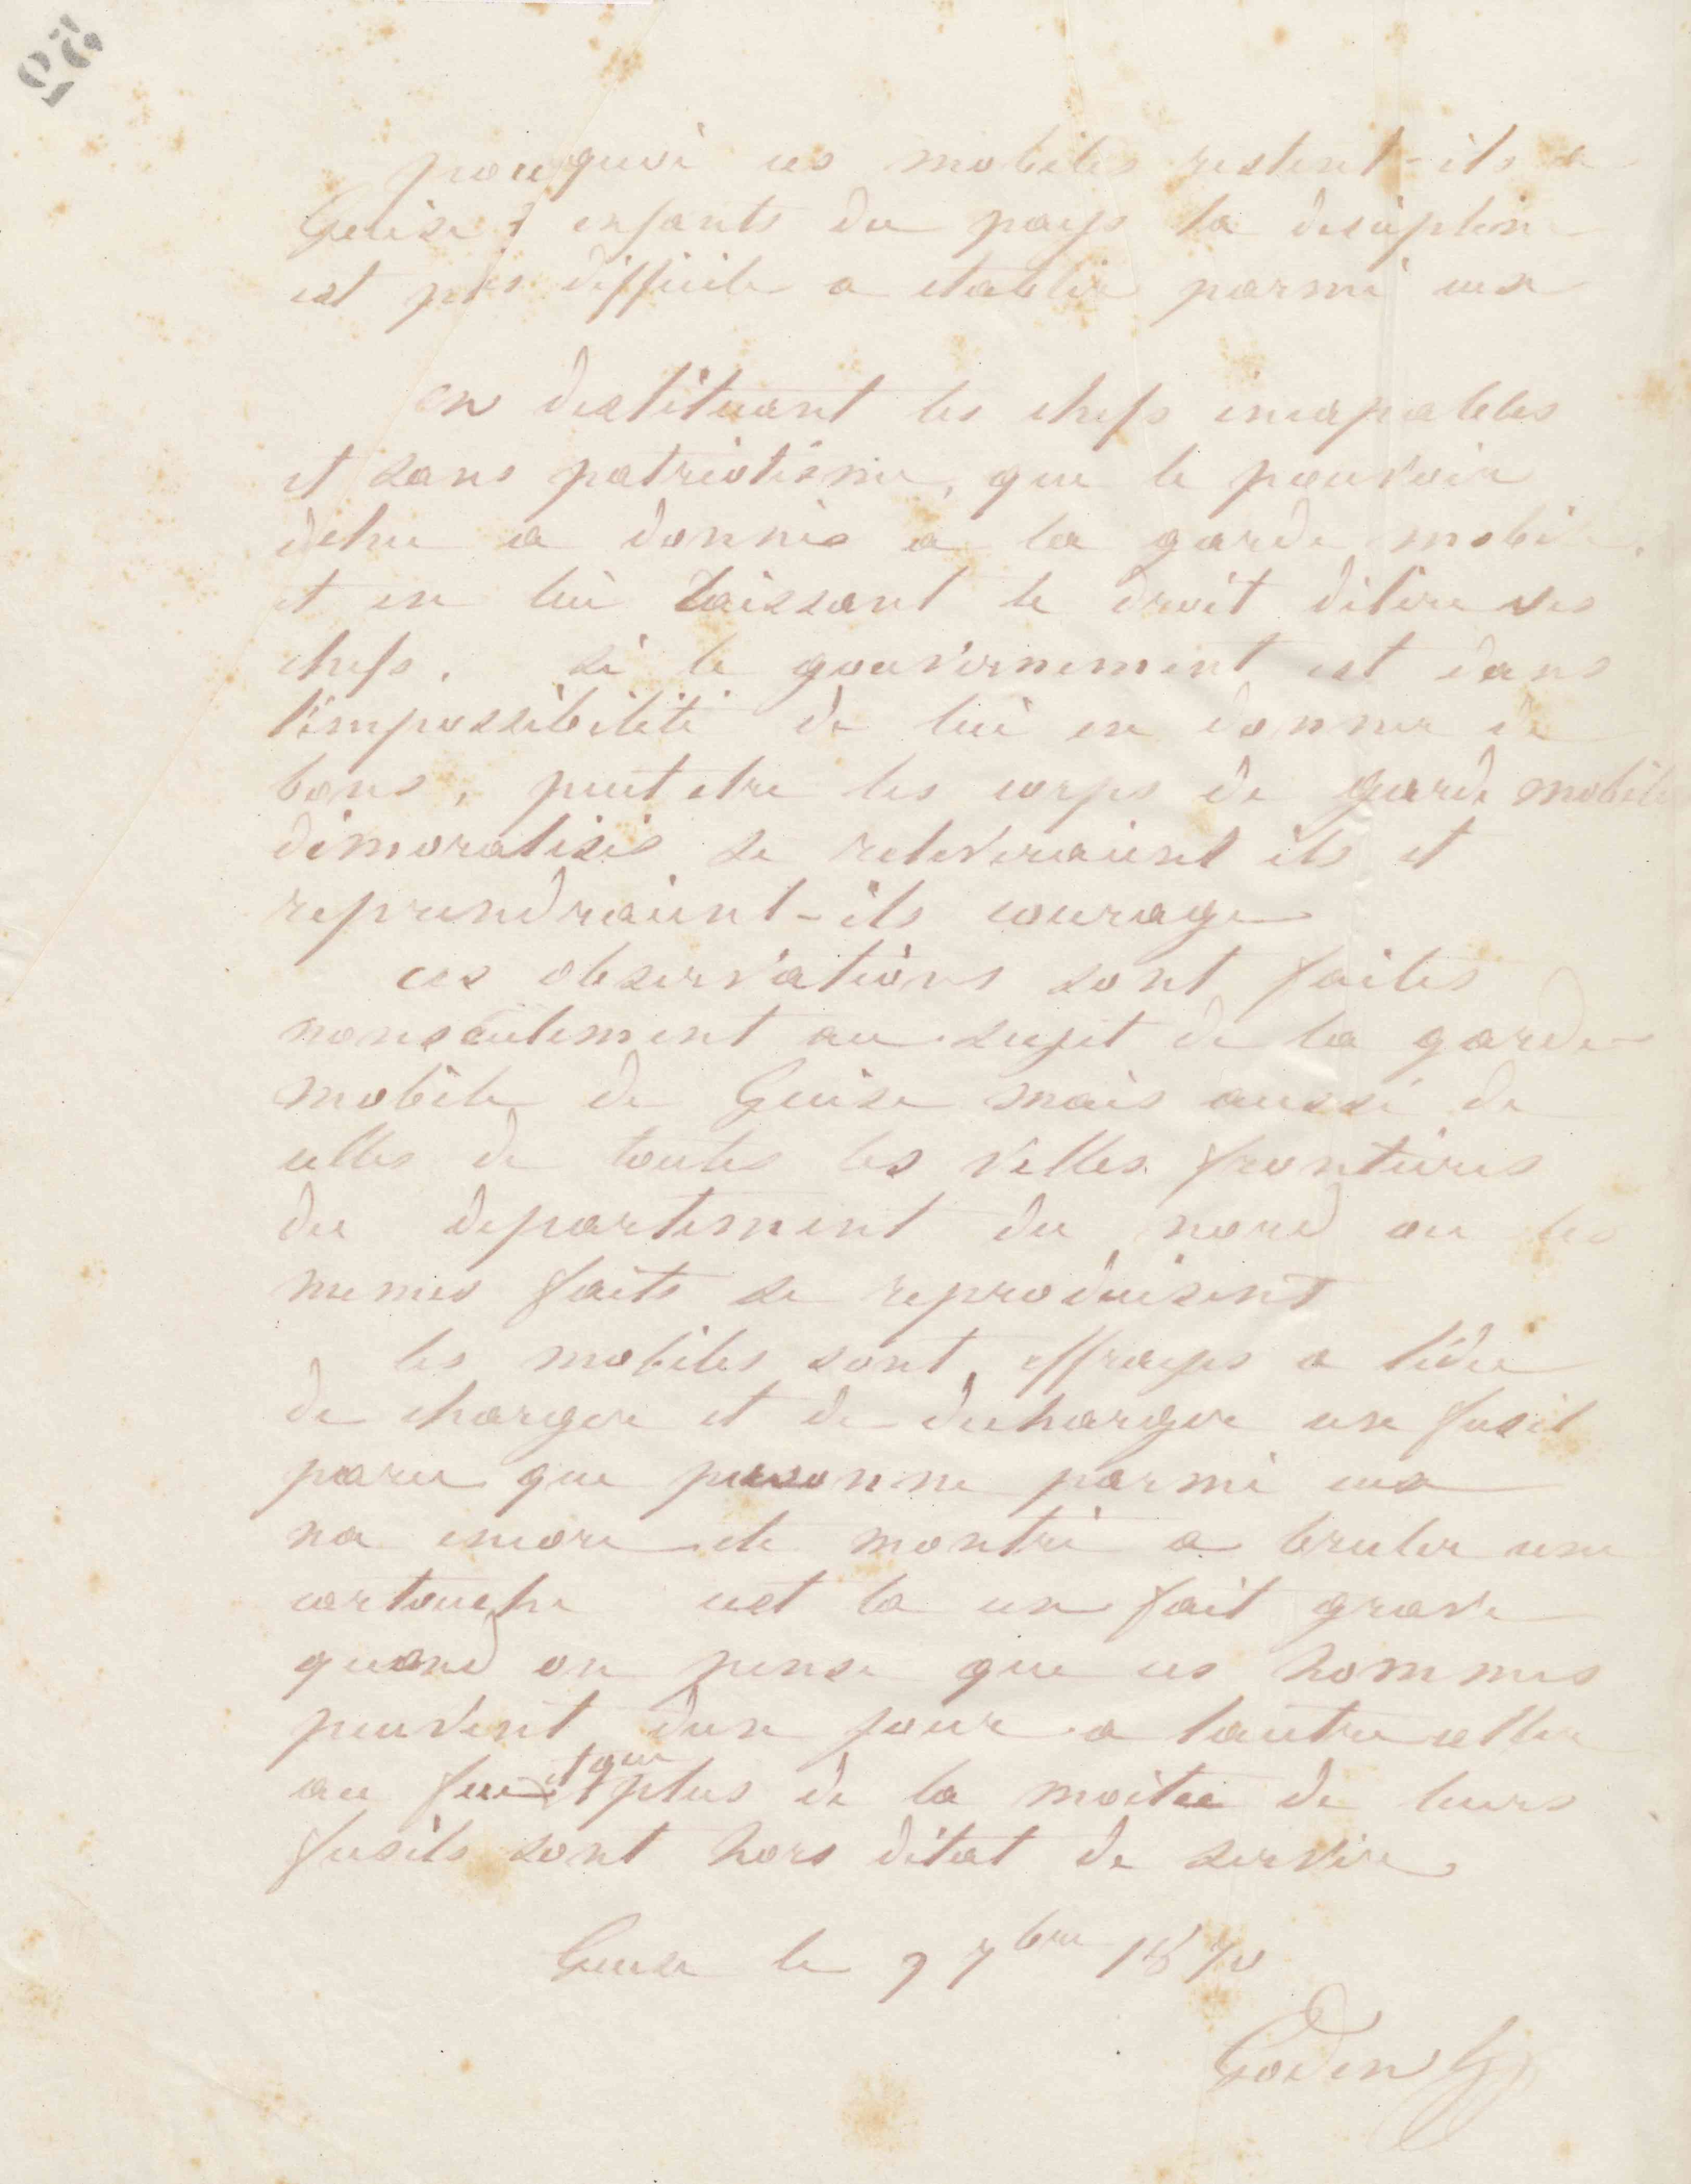 25
pourquoi ces mobiles restent-ils a
Guise ? enfants du pays la discipline
est plus difficile a etablir parmi eux
en destituant les chefs incapables
et sans patriotisme, que le pouvoir
dechu a donnés a la garde mobile,
et en lui laissant le droit délire ses
chefs. si le gouvernement est dans
l'impossibilité de lui en donner de
bons, peut etre les corps de garde mobile
démoralisés se releveraient ils et
reprendraient-ils courage
ces observations sont faites
nonseulement au sujet de la garde
mobile de Guise mais aussi de
celles de toutes les villes frontieres
du departement du nord ou les
memes faits se reproduisent
les mobiles sont effrayes a lidée
de charger et de decharger un fusil
parce que personne parmi eux
na encore ete montré a bruler une
cartouche cest la un fait grave
quand on pense que ces hommes
peuvent dun jour a lautre aller
au feu et que plus de la moitee de leurs
fusils sont hors détat de servir
Guise le 9 7bre 1870
Godin